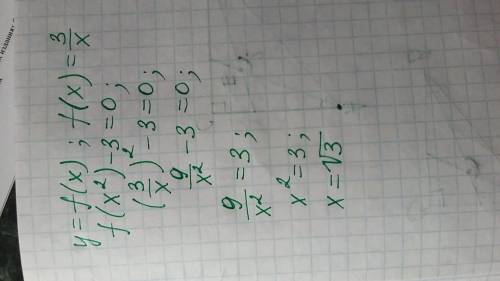 y = f(x) ; f(x) = 3/x
f(x²) - 3 = 0 ;
(3/x)² - 3 = 0 ;
9/x² - 3 = 0 ;
9/x² = 3 ;
x² = 3 ;
x = √3